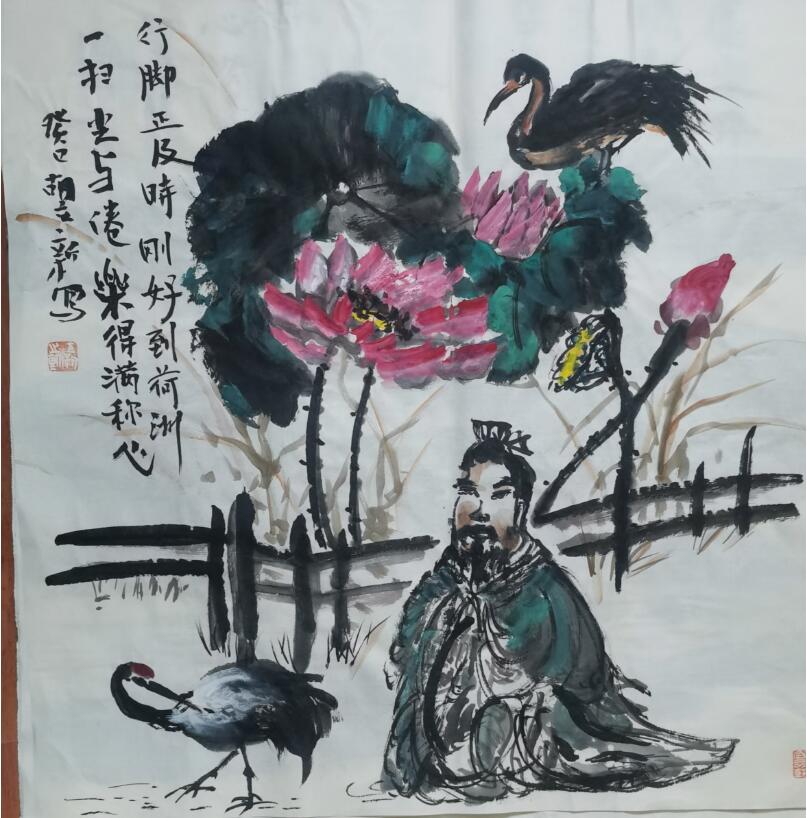 行脚正及時剛好到荷洲
一扫尘与倦樂得满称心
癸巳胡立新寫